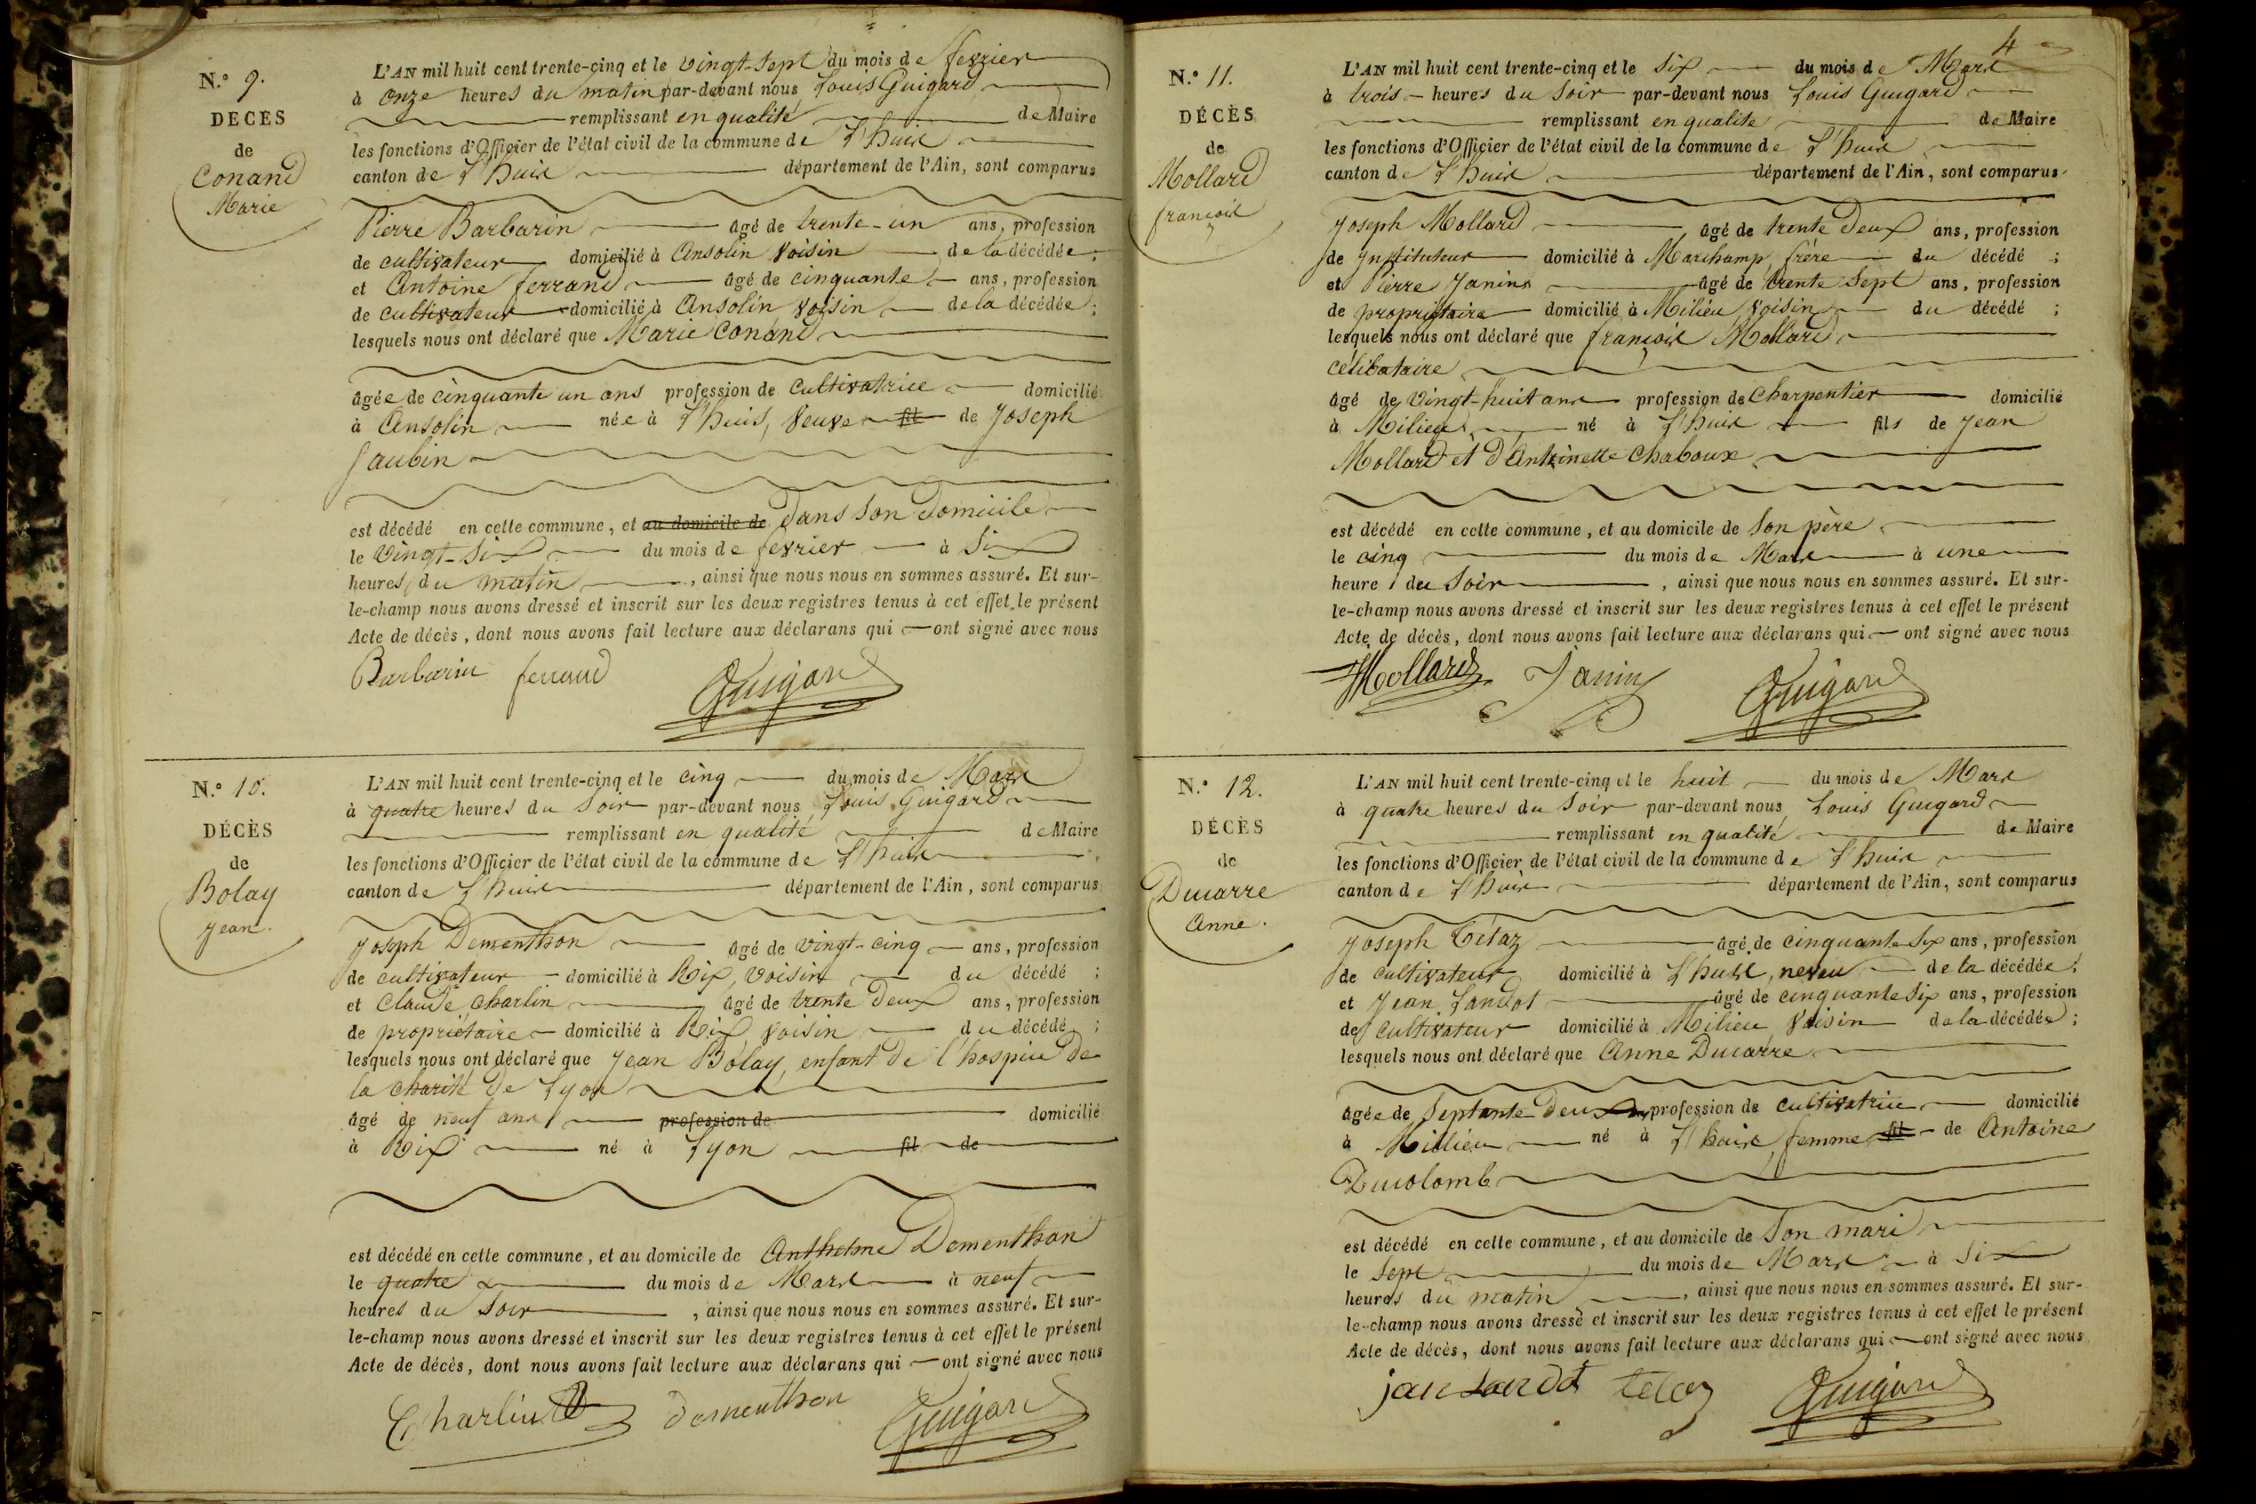 N.o 9.
DÉCÈS
de
Conand
Marie
L'AN mil huit cent trente-cinq et le vingt-sept du mois de fevrier
à onze heures du matin par-devant nous Louis Guigard
remplissant en qualité de Maire
les fonctions d'Officier de l'état civil de la commune de L'huis
canton de L'huis département de l'Ain, sont comparus
Pierre Barbarin âgé de trente-un ans, profession
de cultivateur domicilié à Ansolin voisin de la décédée ;
et Antoine ferrand âgé de cinquante ans, profession
de cultivateur domicilié à Ansolin voisin de la décédée ;
lesquels nous ont déclaré que Marie Conand
âgée de cinquante un ans profession de cultivatrice domicilié
à Ansolin née à L'huis, veuve fil de Joseph
Jaubin
est décédé en cette commune, et au domicile de dans son domicile
le vingt-six du mois de fevrier à six
heures du matin, ainsi que nous nous en sommes assuré. Et sur-
le-champ nous avons dressé et inscrit sur les deux registres tenus à cet effet le présent
Acte de décès, dont nous avons fait lecture aux déclarans qui ont signé avec nous
Barbarin ferrand Guigard
N.o 10.
DÉCÈS
de
Bolay
Jean.
L'AN mil huit cent trente-cinq et le cinq du mois de Mars
à quatre heures du soir par-devant nous Louis Guigard
remplissant en qualité de Maire
les fonctions d'Officier de l'état civil de la commune de L'huis
canton de L'huis département de l'Ain, sont comparus
Joseph Dementhon âgé de vingt-cinq ans, profession
de cultivateur domicilié à Rix, voisin du décédé ;
et Claude Charlin âgé de trente deux ans, profession
de propriétaire domicilié à Rix voisin du décédé ;
lesquels nous ont déclaré que Jean Bolay, enfant de l'hospice de
la charité de Lyon
âgé de neuf ans profession de domicilié
à Rix né à Lyon fil de
est décédé en cette commune, et au domicile de Anthelme Dementhon
le quatre du mois de Mars à neuf
heures du soir, ainsi que nous nous en sommes assuré. Et sur-
le-champ nous avons dressé et inscrit sur les deux registres tenus à cet effet le présent
Acte de décès, dont nous avons fait lecture aux déclarans qui ont signé avec nous
Charlin dementhon Guigard
4
N.o 11.
DÉCÈS
de
Mollard
françois
L'AN mil huit cent trente-cinq et le six du mois de Mars
à trois heures du soir par-devant nous Louis Guigard
remplissant en qualité de Maire
les fonctions d'Officier de l'état civil de la commune de L'huis
canton de L'huis département de l'Ain, sont comparus
Joseph Mollard âgé de trente deux ans, profession
de instituteur domicilié à Marchamp, frère du décédé ;
et Pierre Janin âgé de trente sept ans, profession
de propriétaire domicilié à Milieu voisin du décédé ;
lesquels nous ont déclaré que françois Mollard
célibataire
âgé de vingt-huit ans profession de Charpentier domicilié
à Milieu né à L'huis fils de Jean
Mollard et d'Antoinette Chaboux
est décédé en cette commune, et au domicile de son père
le cinq du mois de Mars à une
heure du soir, ainsi que nous nous en sommes assuré. Et sur-
le-champ nous avons dressé et inscrit sur les deux registres tenus à cet effet le présent
Acte de décès, dont nous avons fait lecture aux déclarans qui ont signé avec nous
Mollard Janin Guigard
N.o 12.
DÉCÈS
de
Ducarre
Anne.
L'AN mil huit cent trente-cinq et le huit du mois de Mars
à quatre heures du soir par-devant nous Louis Guigard
remplissant en qualité de Maire
les fonctions d'Officier de l'état civil de la commune de L'huis
canton de L'huis département de l'Ain, sont comparus
Joseph Tétaz âgé de cinquante six ans, profession
de cultivateur domicilié à L'huis, neveu de la décédée ;
et Jean Landot âgé de cinquante six ans, profession
de cultivateur domicilié à Milieu voisin de la décédée ;
lesquels nous ont déclaré que Anne Ducarre
âgée de septante deux profession de cultivatrice domicilié
à Millieu né à L'huis, femme fil de Antoine
Ducolomb
est décédé en cette commune, et au domicile de son mari
le sept du mois de Mars à six
heures du matin, ainsi que nous nous en sommes assuré. Et sur-
le-champ nous avons dressé et inscrit sur les deux registres tenus à cet effet le présent
Acte de décès, dont nous avons fait lecture aux déclarans qui ont signé avec nous
jan Landot Guigard